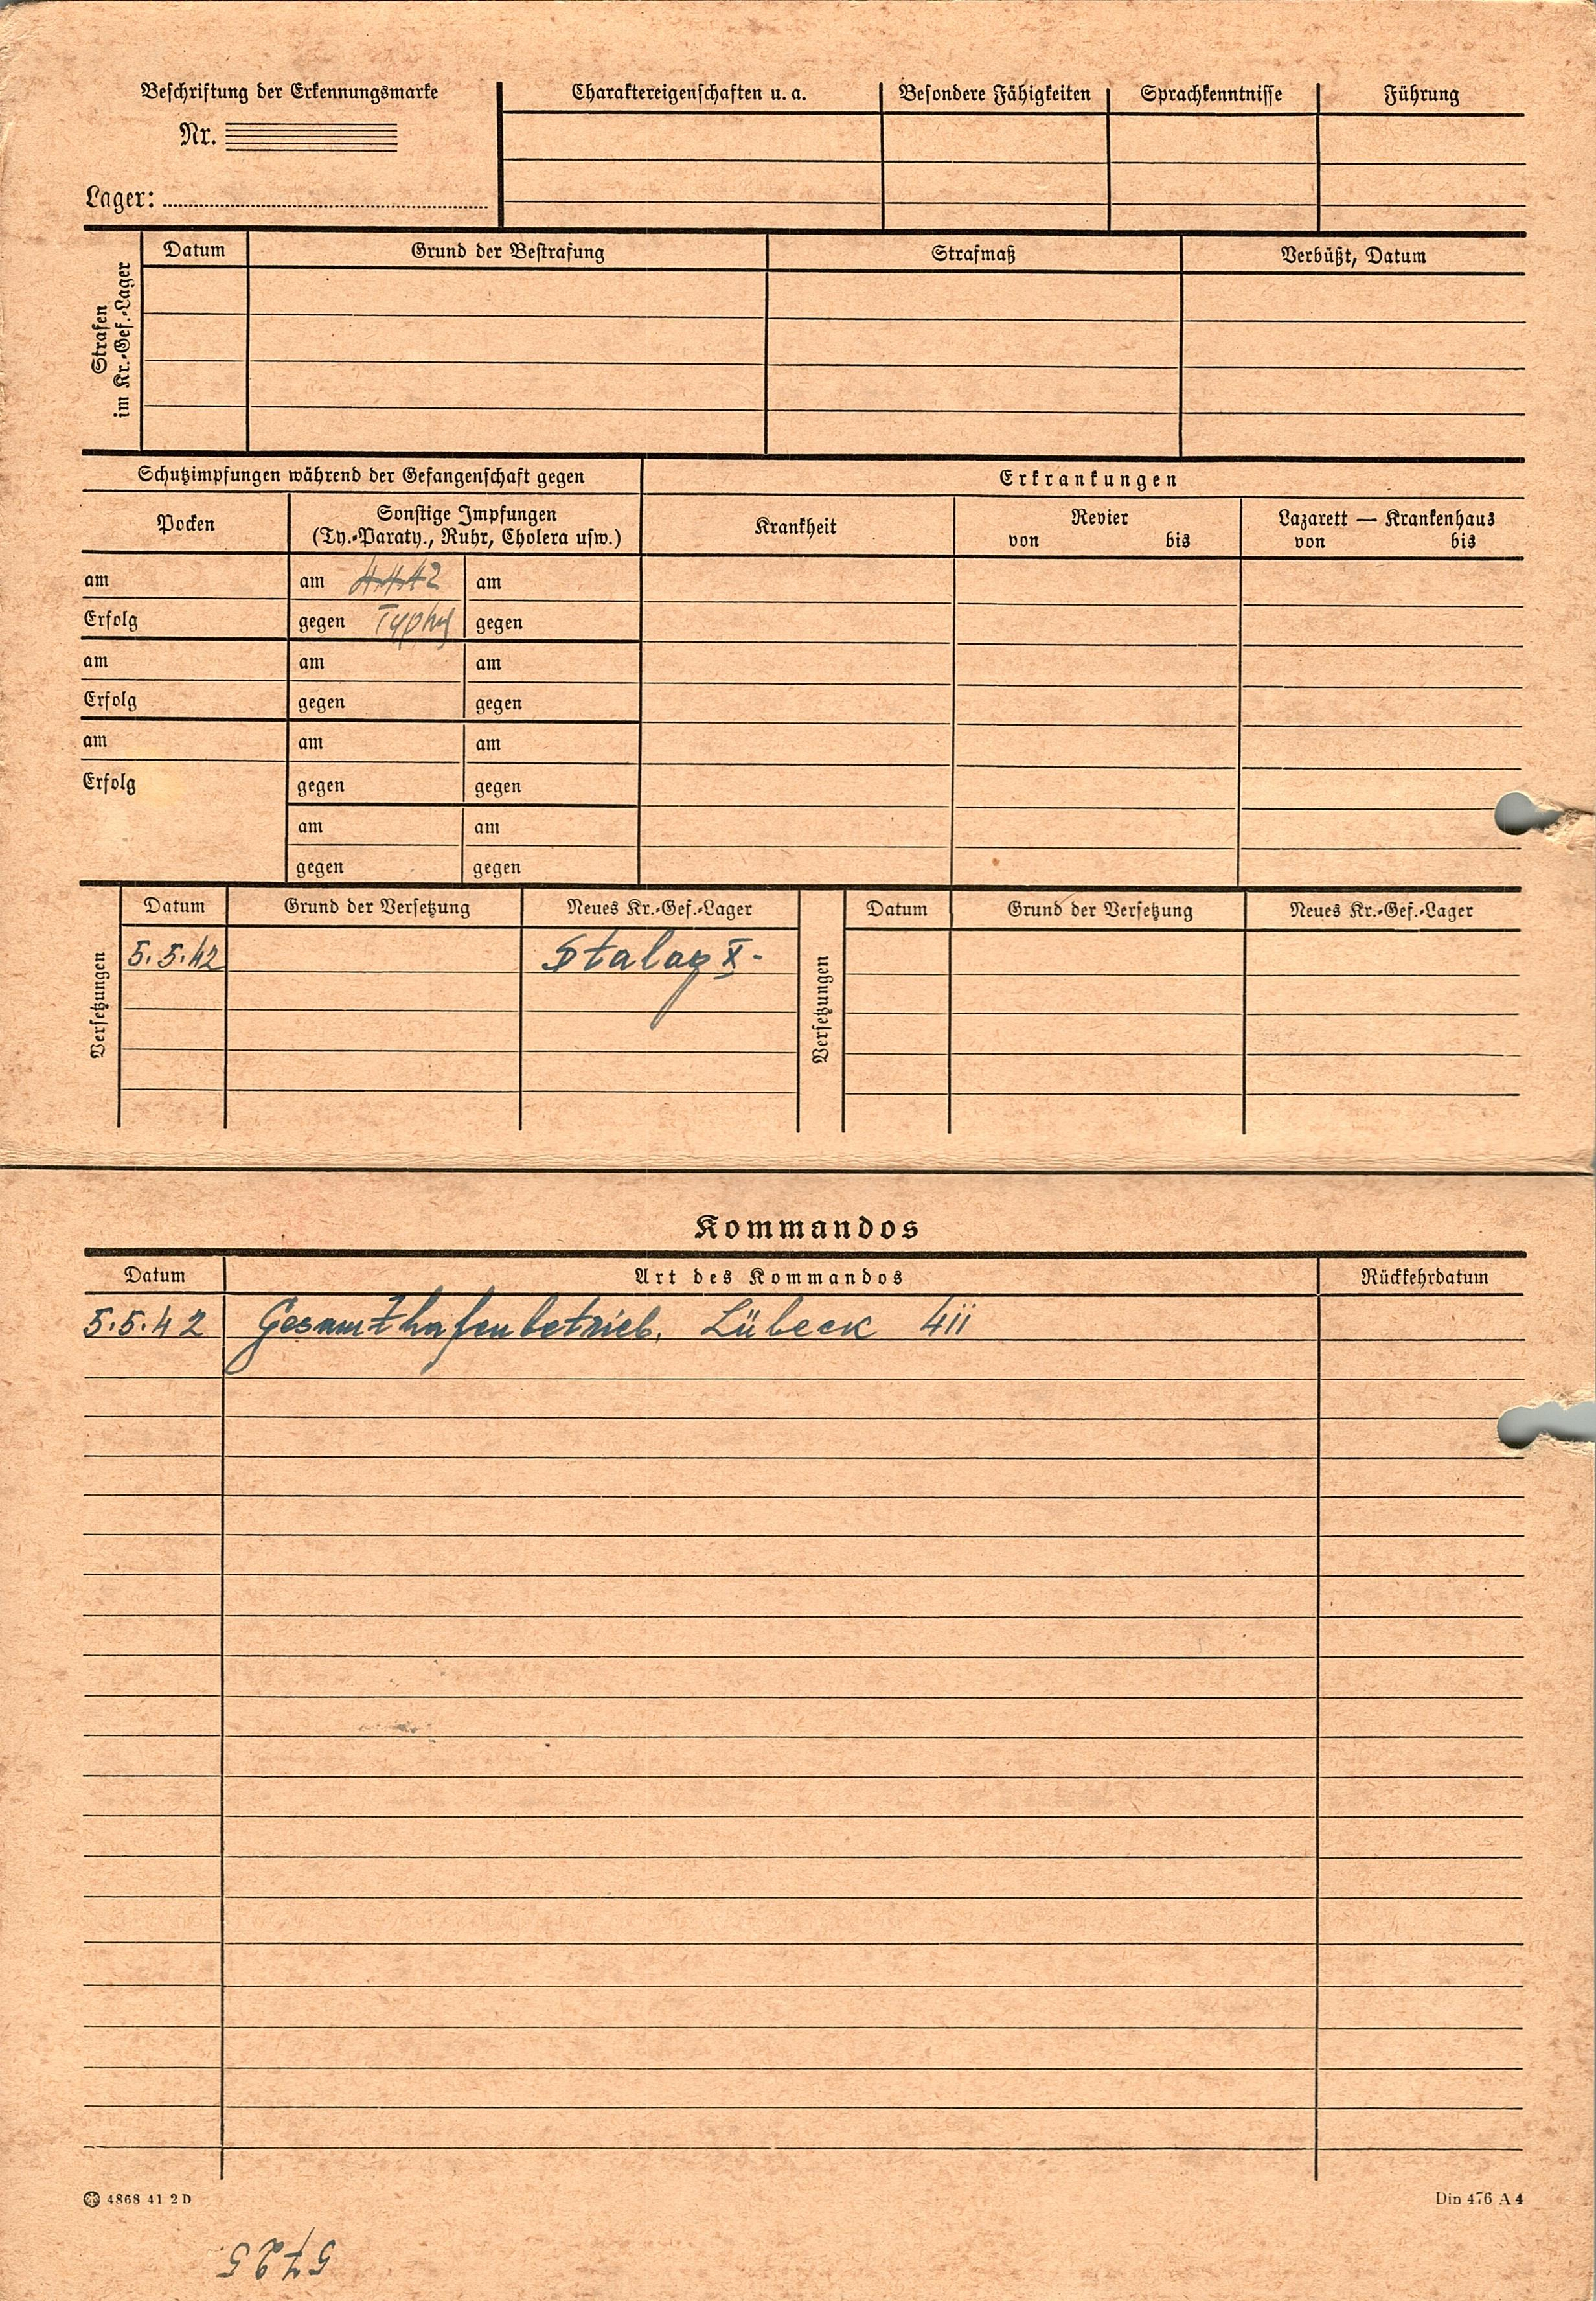 Beschriftung der Erkennungsmarke
Nr.
Lager:
Charaktereigenschaften u. a.
Besondere Fähigkeiten
Sprachkenntnisse
Führung
Strafen
im Kr.-Gef.-Lager
Datum
Grund der Bestrafung
Strafmaß
Verbüßt, Datum
Schutzimpfungen während der Gefangenschaft gegen
Erkrankungen
Pocken
Sonstige Impfungen
(Ty.-Paraty., Ruhr, Cholera usw.)
Krankheit
Revier
von bis
Lazarett — Krankenhaus
von bis
am am 4.4.42 am
Erfolg gegen Typhus gegen
am am am
Erfolg gegen gegen
am am am
Erfolg gegen gegen
am am
gegen gegen
Versetzungen
Datum Grund der Versetzung Neues Kr.-Gef.-Lager
5.5.42 Stalag X-
Versetzungen
Datum Grund der Versetzung Neues Kr.-Gef.-Lager
Kommandos
Datum Art des Kommandos Rückkehrdatum
5.5.42 Gesamthafenbetrieb. Lübeck 4ii
4868 41 2 D
Din 476 A 4
5725